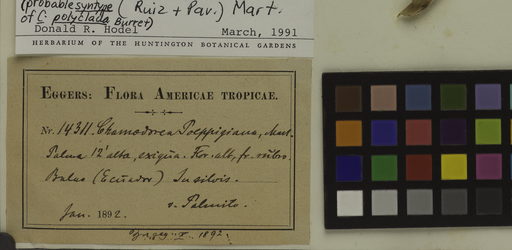 (probable syntype (Ruiz + Pav.) Mart.
of C. polyclada Burret)
Donald R. Hodel March, 1991
HERBARIUM OF THE HUNTINGTON BOTANICAL GARDENS
EGGERS: FLORA AMERICAE TROPICAE.
Nr. 14311. Chamaedorea Poeppigiana, Mart.
Palma 12' alta, exigua. Flor. alb, fr. rubro.
Balao (Ecuador) In silvis.
v. Palmito.
Jan. 1892.
1892.